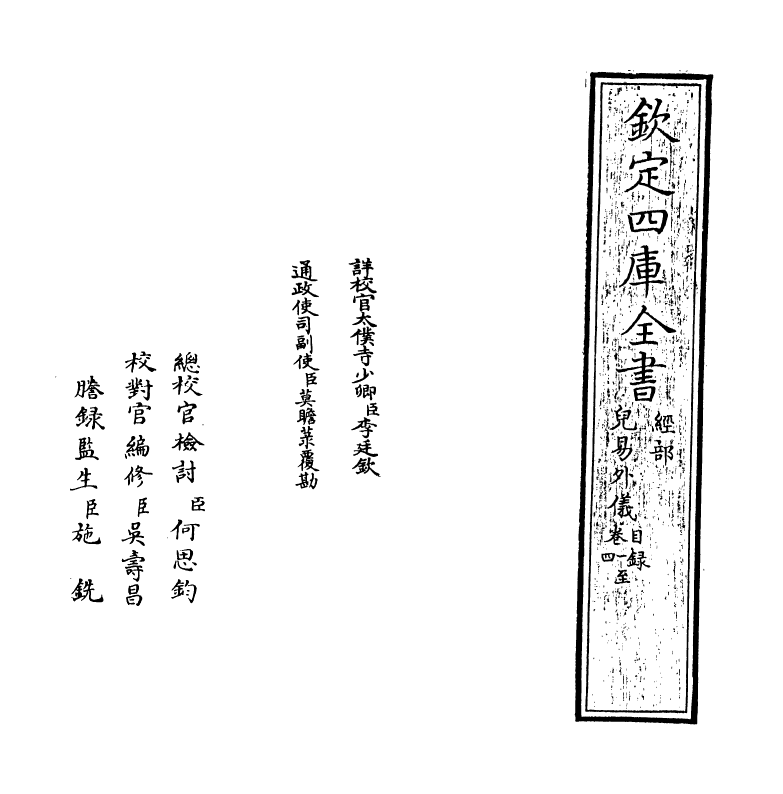 欽定四庫全書
經部
兒易外儀目録
卷一至四
詳校官太僕寺少卿臣李廷欽
通政使司副使臣莫瞻菉覆勘
總校官檢討臣何思鈞
校對官編修臣吳壽昌
謄録監生臣施銑